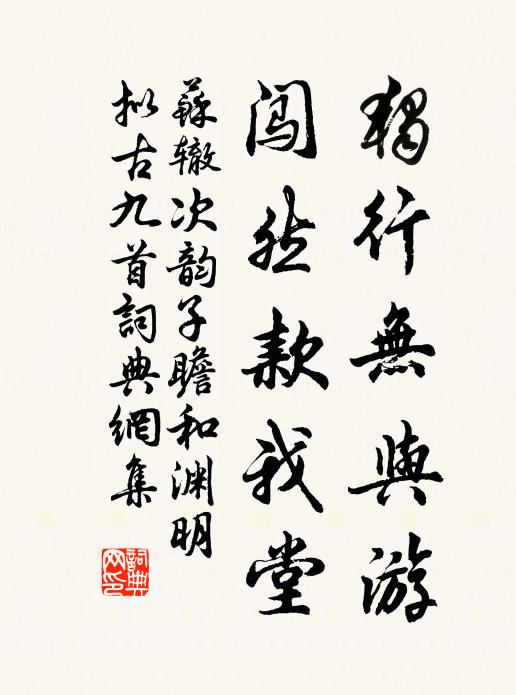 獨行無與游
闯然款我堂
蘇辙次韵子瞻和渊明
拟古九首詞典網集
詞典
网印